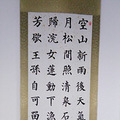 空山新雨後天氣
月松間照清泉石
歸浣女蓮動下漁
芳歇王孫自可留